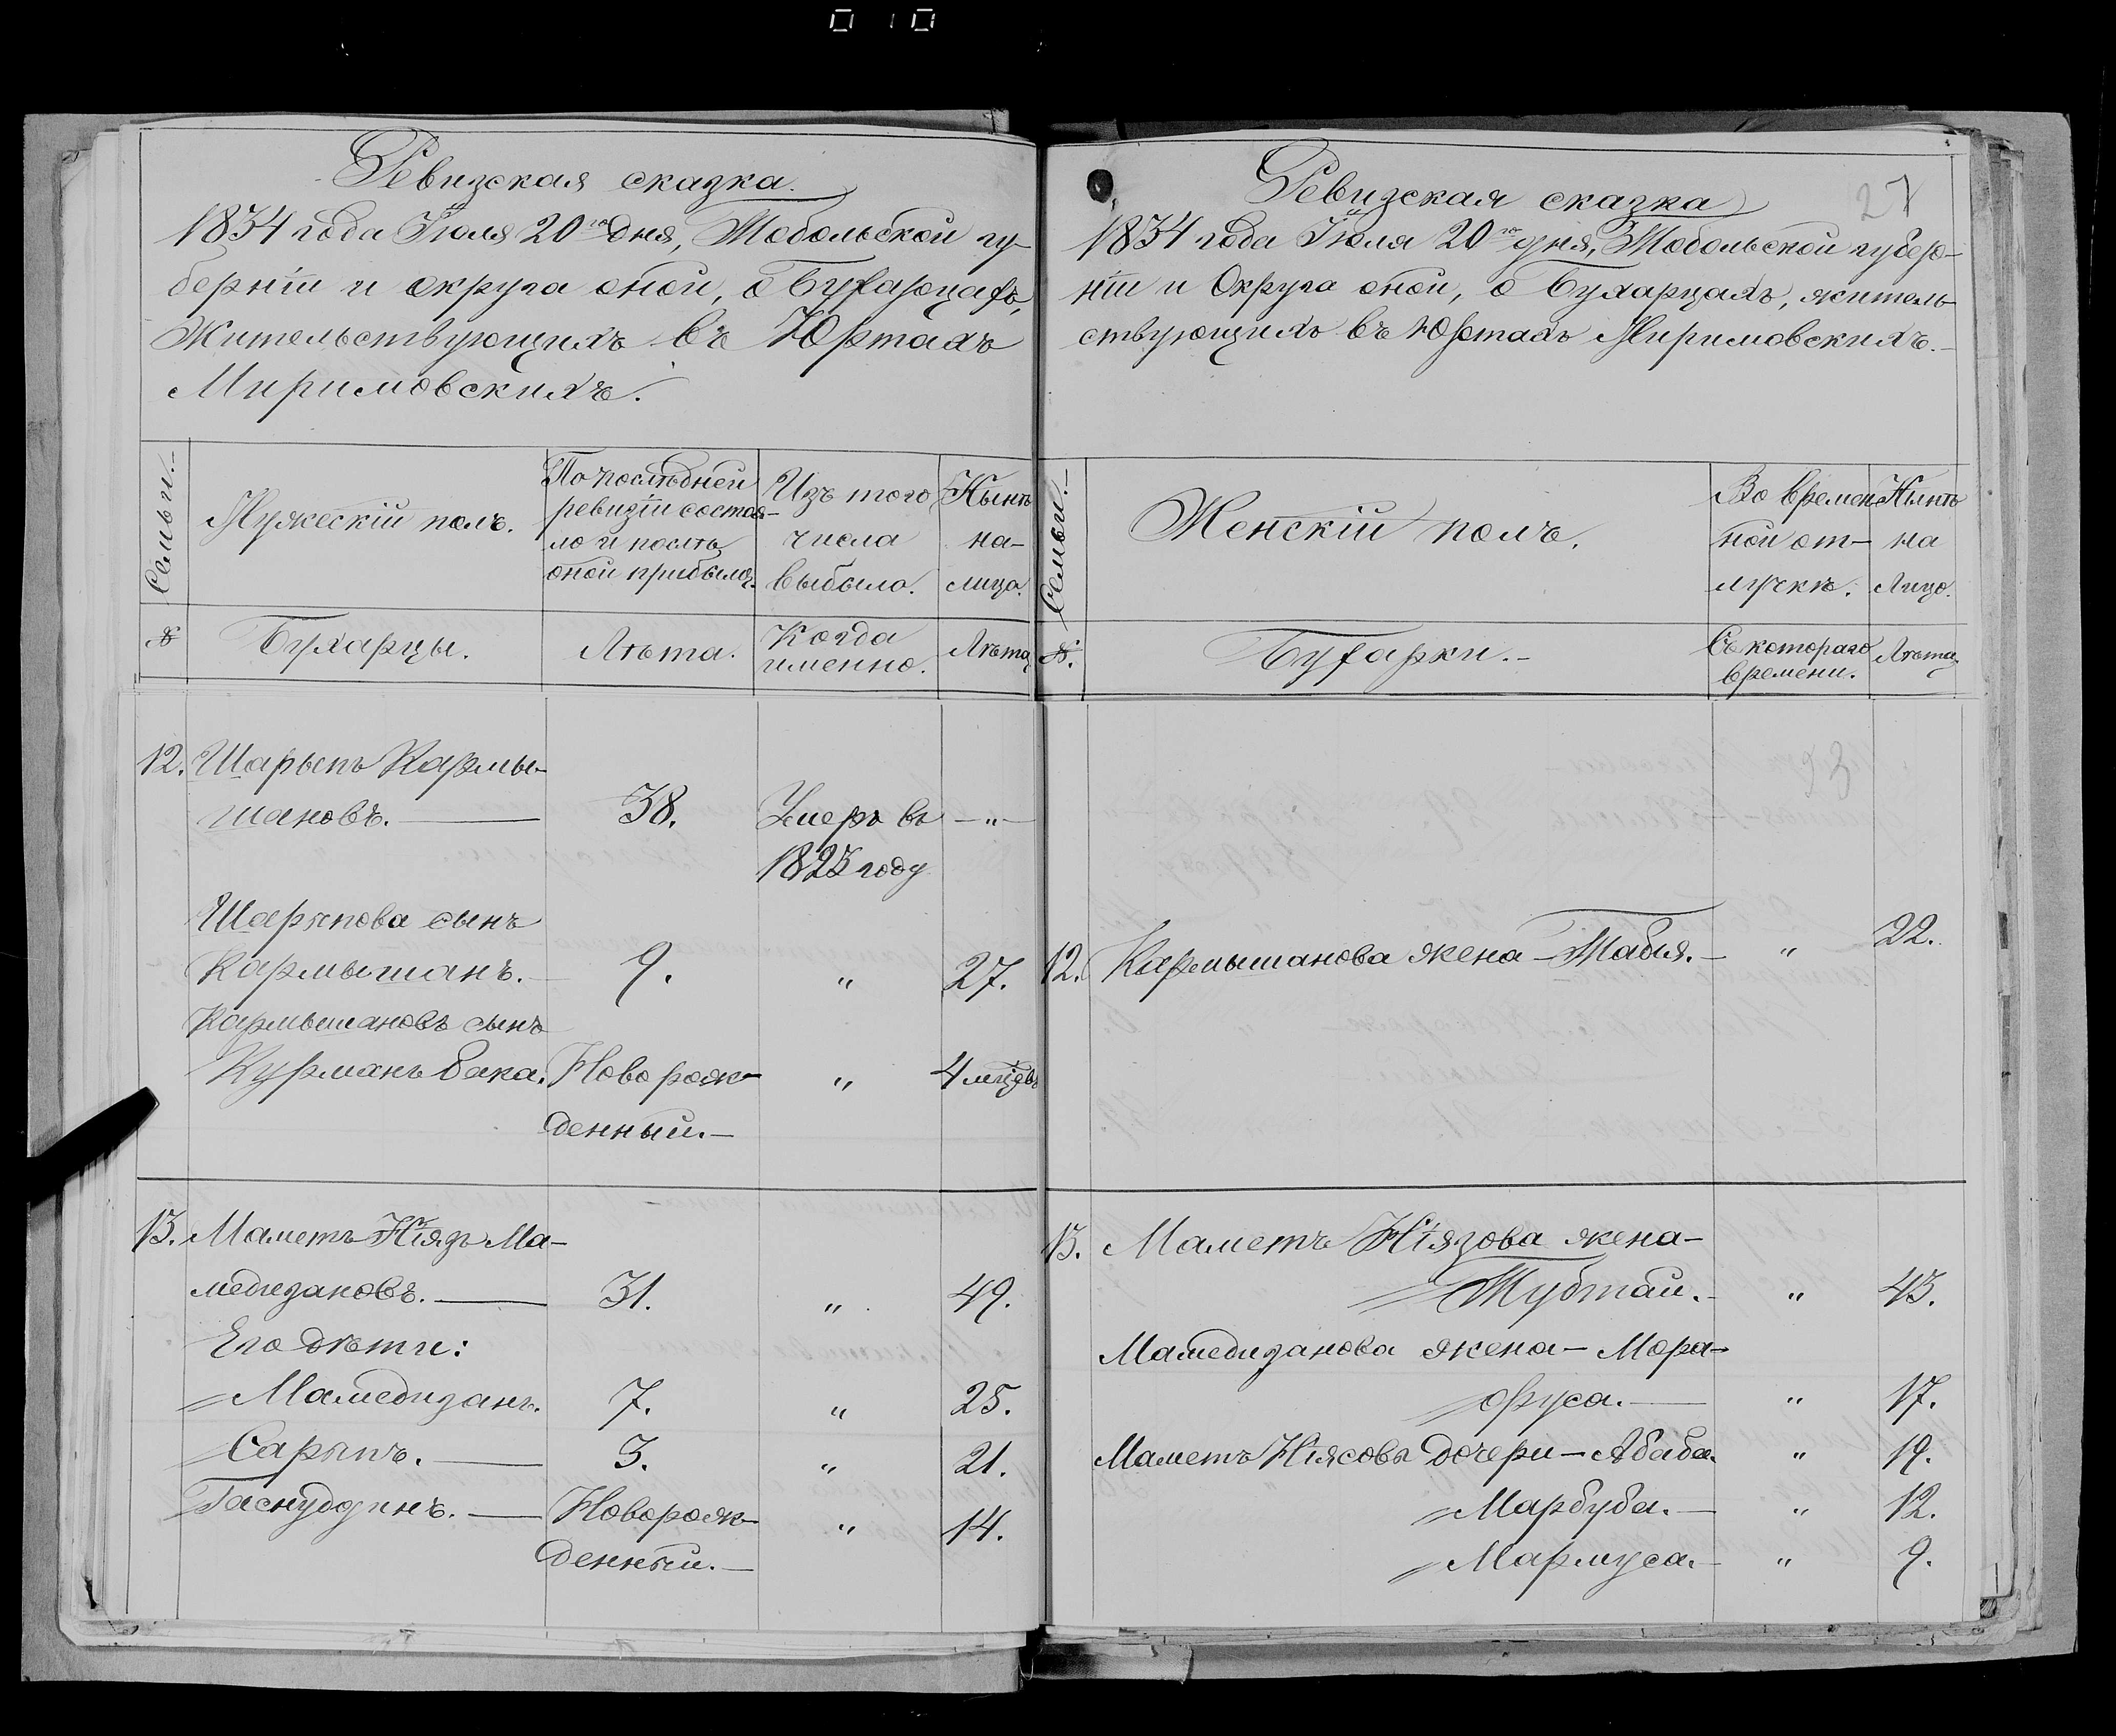 010
Ревизская сказка.
1834 года Іюля 20го дня, Тобольской гу-
берніи и округа оной, о Бухарцахъ,
жительствующихъ въ Юртахъ
Миримовскихъ.
Семьи.
Мужескій полъ.
По послѣдней
ревизіи состоя-
ло и послѣ
оной прибыло.
Изъ того
числа
выбыло.
Нынѣ
на-
лицо.
№
Бухарцы.
Лѣта.
Когда
именно.
Лѣта
12. Шарыпъ Кармы-
шановъ. — 38. Умеръ въ — „ —
1825 году
Шарыпова сынъ
Кармышанъ. — 9. „ 27.
Кармышановъ сынъ
Курманъ бака. Новорож- „ 4 мѣсцвъ
денный. —
13. Маметъ Ніязъ Ма-
медизановъ. — 31. „ 49.
Его дѣти:
Мамедизанъ. 7. „ 25.
Сарыпъ. — 3. „ 21.
Гаснуддинъ. — Новорож- „ 14.
денный. —
27
Ревизская сказка
1834 года Іюля 20го дня, Тобольской губер-
ніи и Округа оной, о Бухарцахъ, житель-
ствующихъ въ Юртахъ Миримовскихъ. —
Семьи. —
Женскій полъ.
Во времен
ной от-
лучкѣ.
Нынѣ
на
лицо.
№.
Бухарки. —
Съ котораго
времени.
Лѣта
12. Кармышанова жена — Табия. — „ 22.
13. Маметъ Ніязова жена —
Тубтаи. — „ 43.
Мамедизанова жена — Мора-
фруса. — „ 17.
Маметъ Ніясовы дочери — Абаба. „ 19.
Марбуба. — „ 12.
Мармуса. — „ 9.